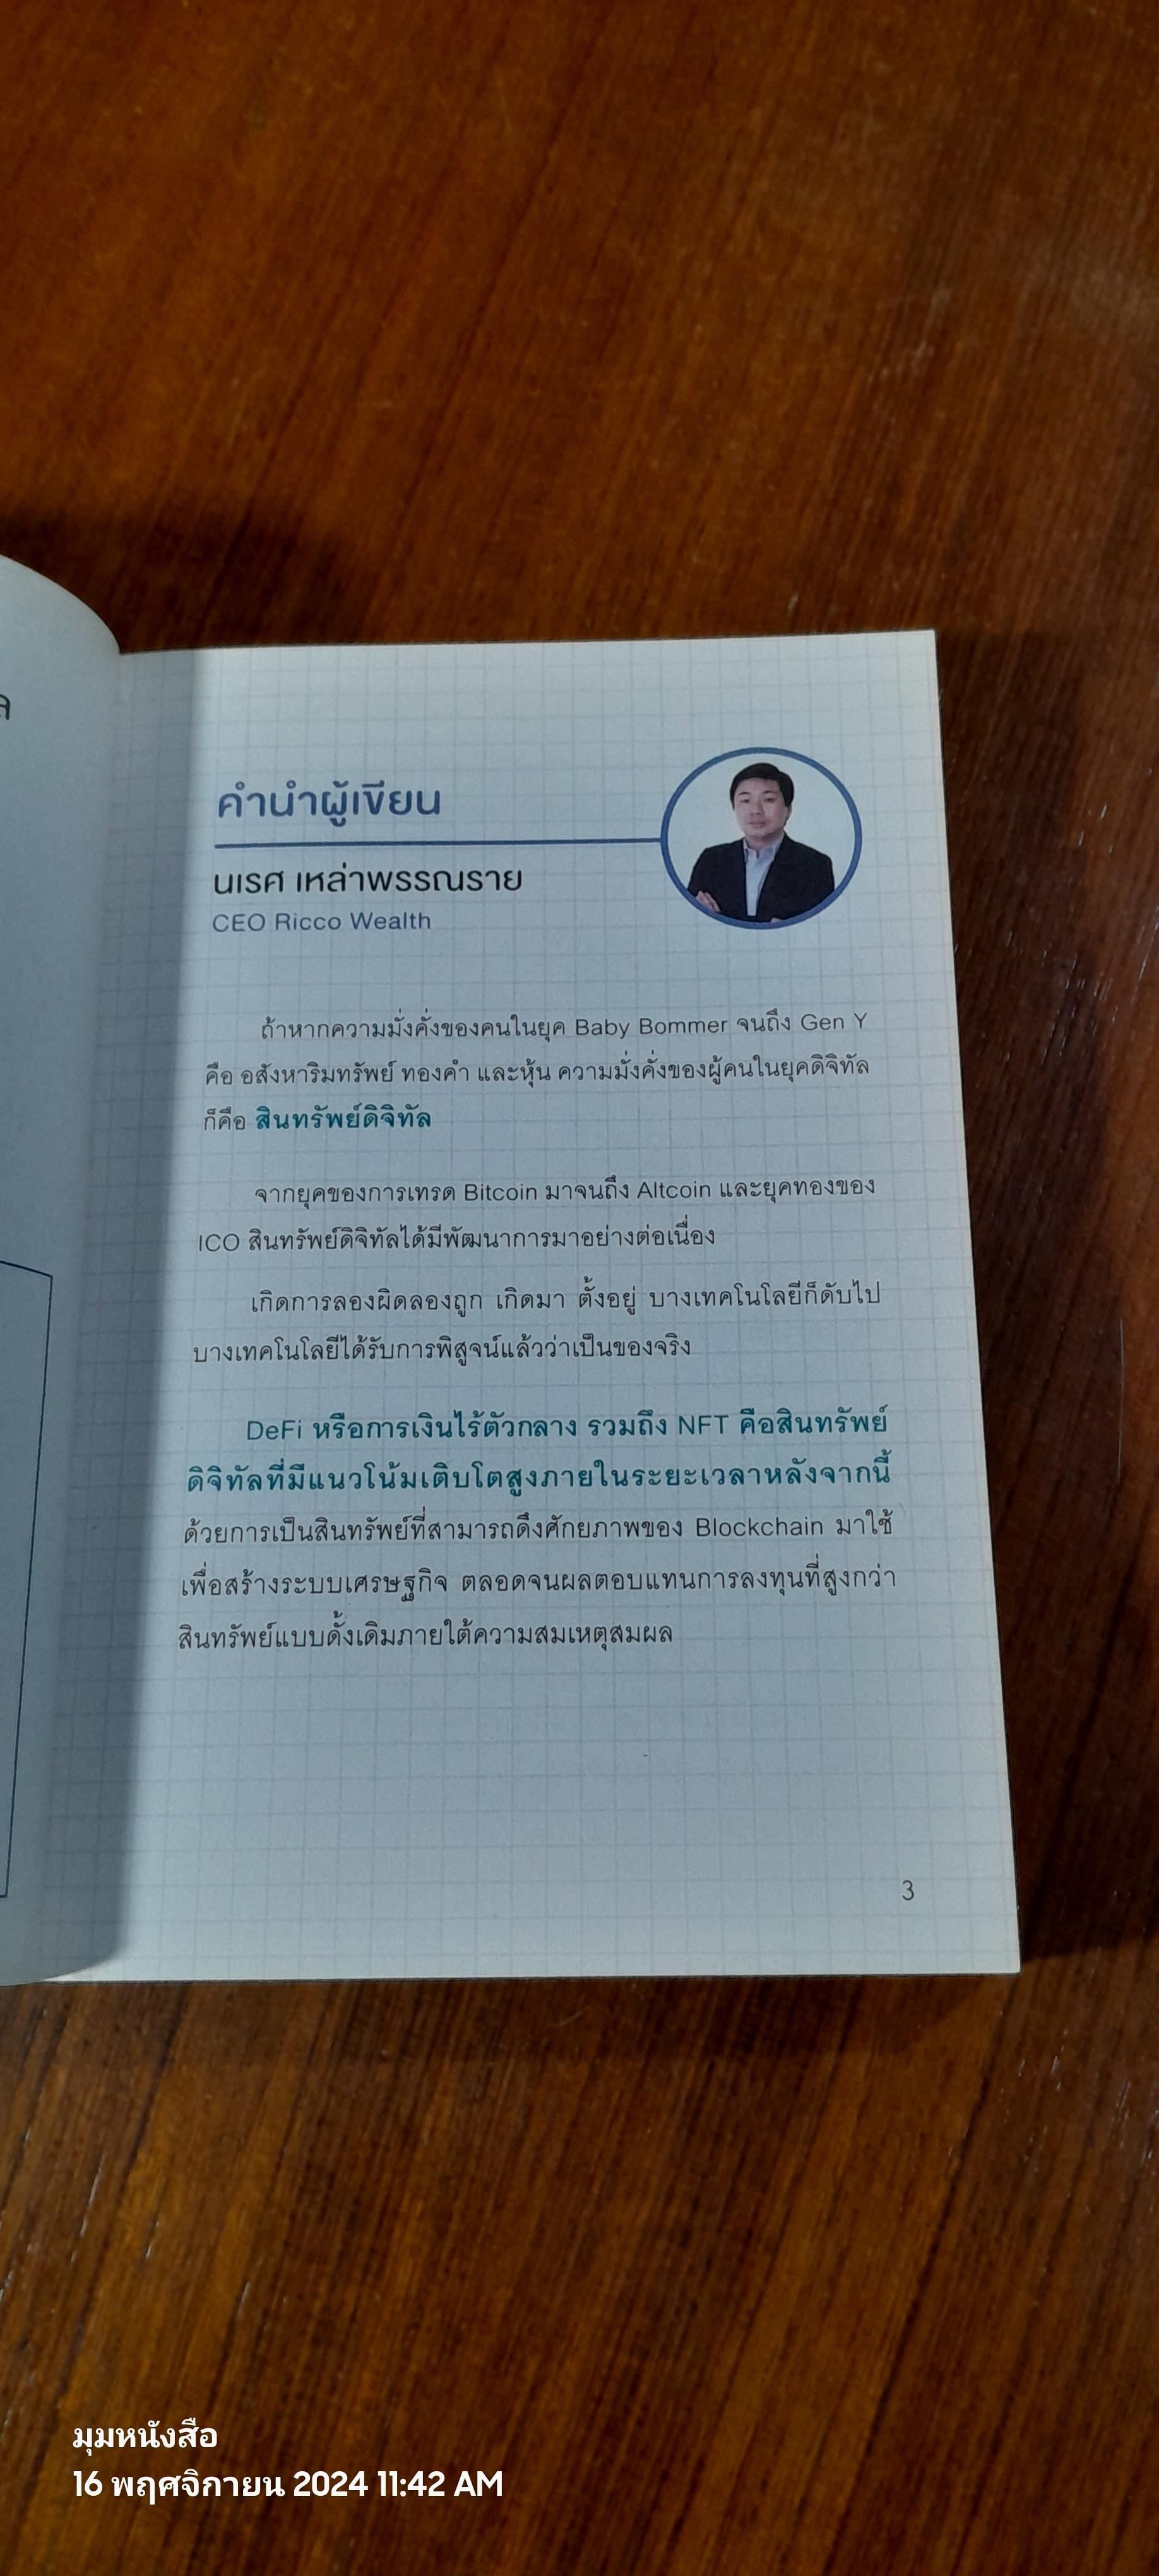 ล
คำนำผู้เขียน
นเรศ เหล่าพรรณราย
CEO Ricco Wealth
ถ้าหากความมั่งคั่งของคนในยุค Baby Bommer จนถึง Gen Y
คือ อสังหาริมทรัพย์ ทองคำ และหุ้น ความมั่งคั่งของผู้คนในยุคดิจิทัล
ก็คือ สินทรัพย์ดิจิทัล
จากยุคของการเทรด Bitcoin มาจนถึง Altcoin และยุคทองของ
ICO สินทรัพย์ดิจิทัลได้มีพัฒนาการมาอย่างต่อเนื่อง
เกิดการลองผิดลองถูก เกิดมา ตั้งอยู่ บางเทคโนโลยีก็ดับไป
บางเทคโนโลยีได้รับการพิสูจน์แล้วว่าเป็นของจริง
DeFi หรือการเงินไร้ตัวกลาง รวมถึง NFT คือสินทรัพย์
ดิจิทัลที่มีแนวโน้มเติบโตสูงภายในระยะเวลาหลังจากนี้
ด้วยการเป็นสินทรัพย์ที่สามารถดึงศักยภาพของ Blockchain มาใช้
เพื่อสร้างระบบเศรษฐกิจ ตลอดจนผลตอบแทนการลงทุนที่สูงกว่า
สินทรัพย์แบบดั้งเดิมภายใต้ความสมเหตุสมผล
3
มุมหนังสือ
16 พฤศจิกายน 2024 11:42 AM